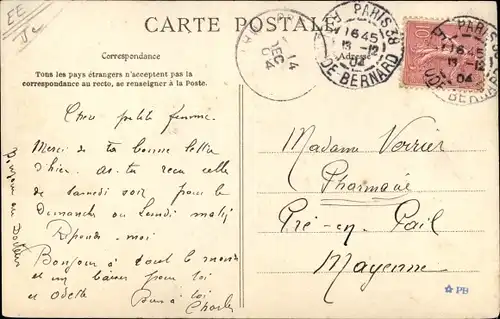 EE
CARTE POSTALE
Correspondance
Tous les pays étrangers n'acceptent pas la
correspondance au recto, se renseigner à la Poste.
Adresse
PARIS 38
1645
13 -12
04
R. DE BERNARD
14
DEC
04
Chère petite femme.
Merci de ta bonne lettre
d'hier. as-tu reçu celle
de samedi soir pour le
Dimanche ou Lundi matin
Réponds-moi
Bonjour à tout le monde
et un baiser pour toi
et Odette
Bien à toi
Charles
Bonjour au Docteur
Madame Verrier
Pharmacie
Pré-en-Pail
Mayenne
PB